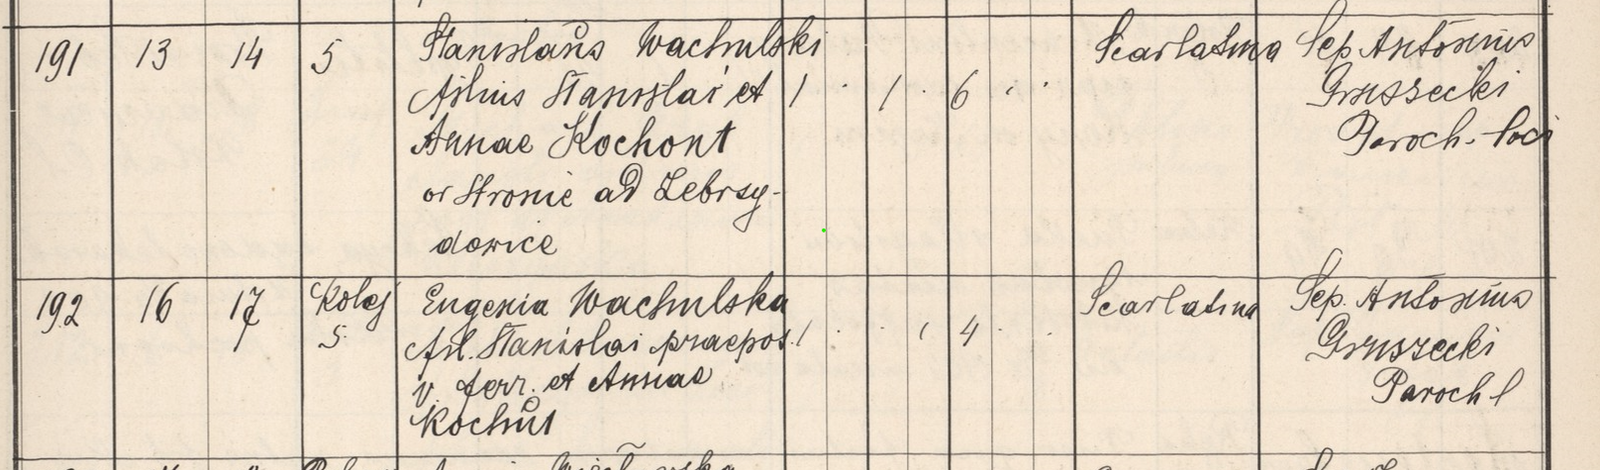 191 13 14 5 Stanislaus Wachulski Scarlatina Sep. Antonius
filius Stanislai et 1 . 1 6 . . Gruszecki
Annae Kochont Paroch. loci
or Stronie ad Zebrzy-
dowice
192 16 17 Kolej Eugenia Wachulska Scarlatina Sep. Antonius
5. fil. Stanislai praepos. 1 . . 1 4 . . Gruszecki
v. ferr. et Annae Paroch l
Kochŭt